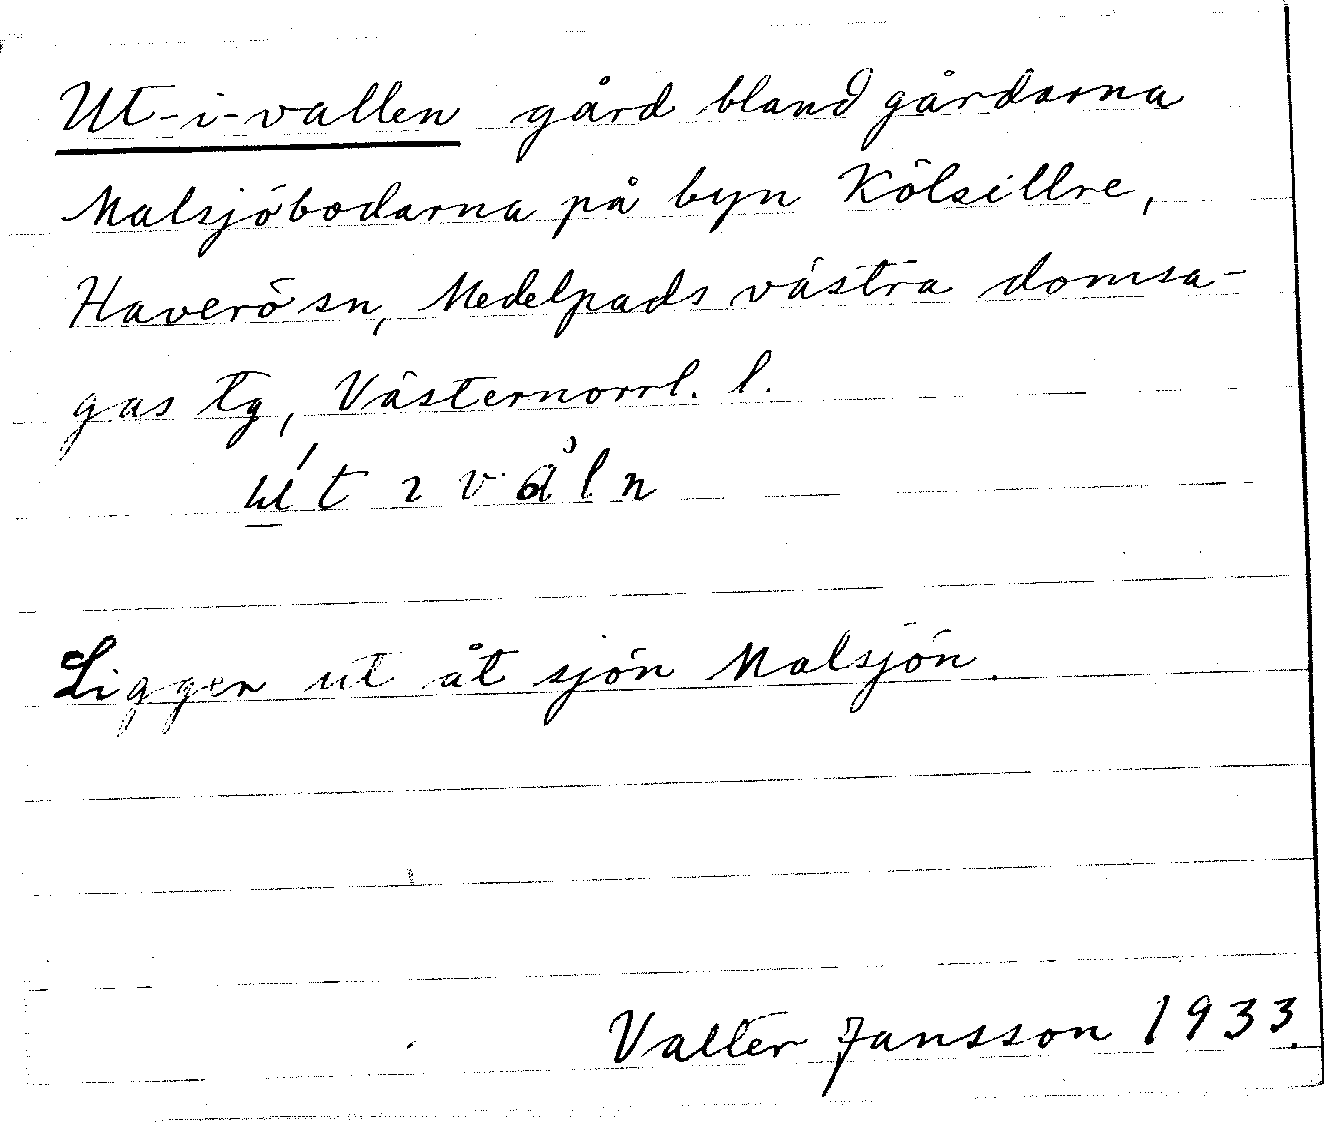 Ut-i-vallen gård bland gårdarna
Malsjöbodarna på byn Kölsillre,
Haverö sn, Medelpads västra domsa-
gas tg, Västernorrl. l.
Ligger ut åt sjön Malsjön.
Valter Jansson 1933.